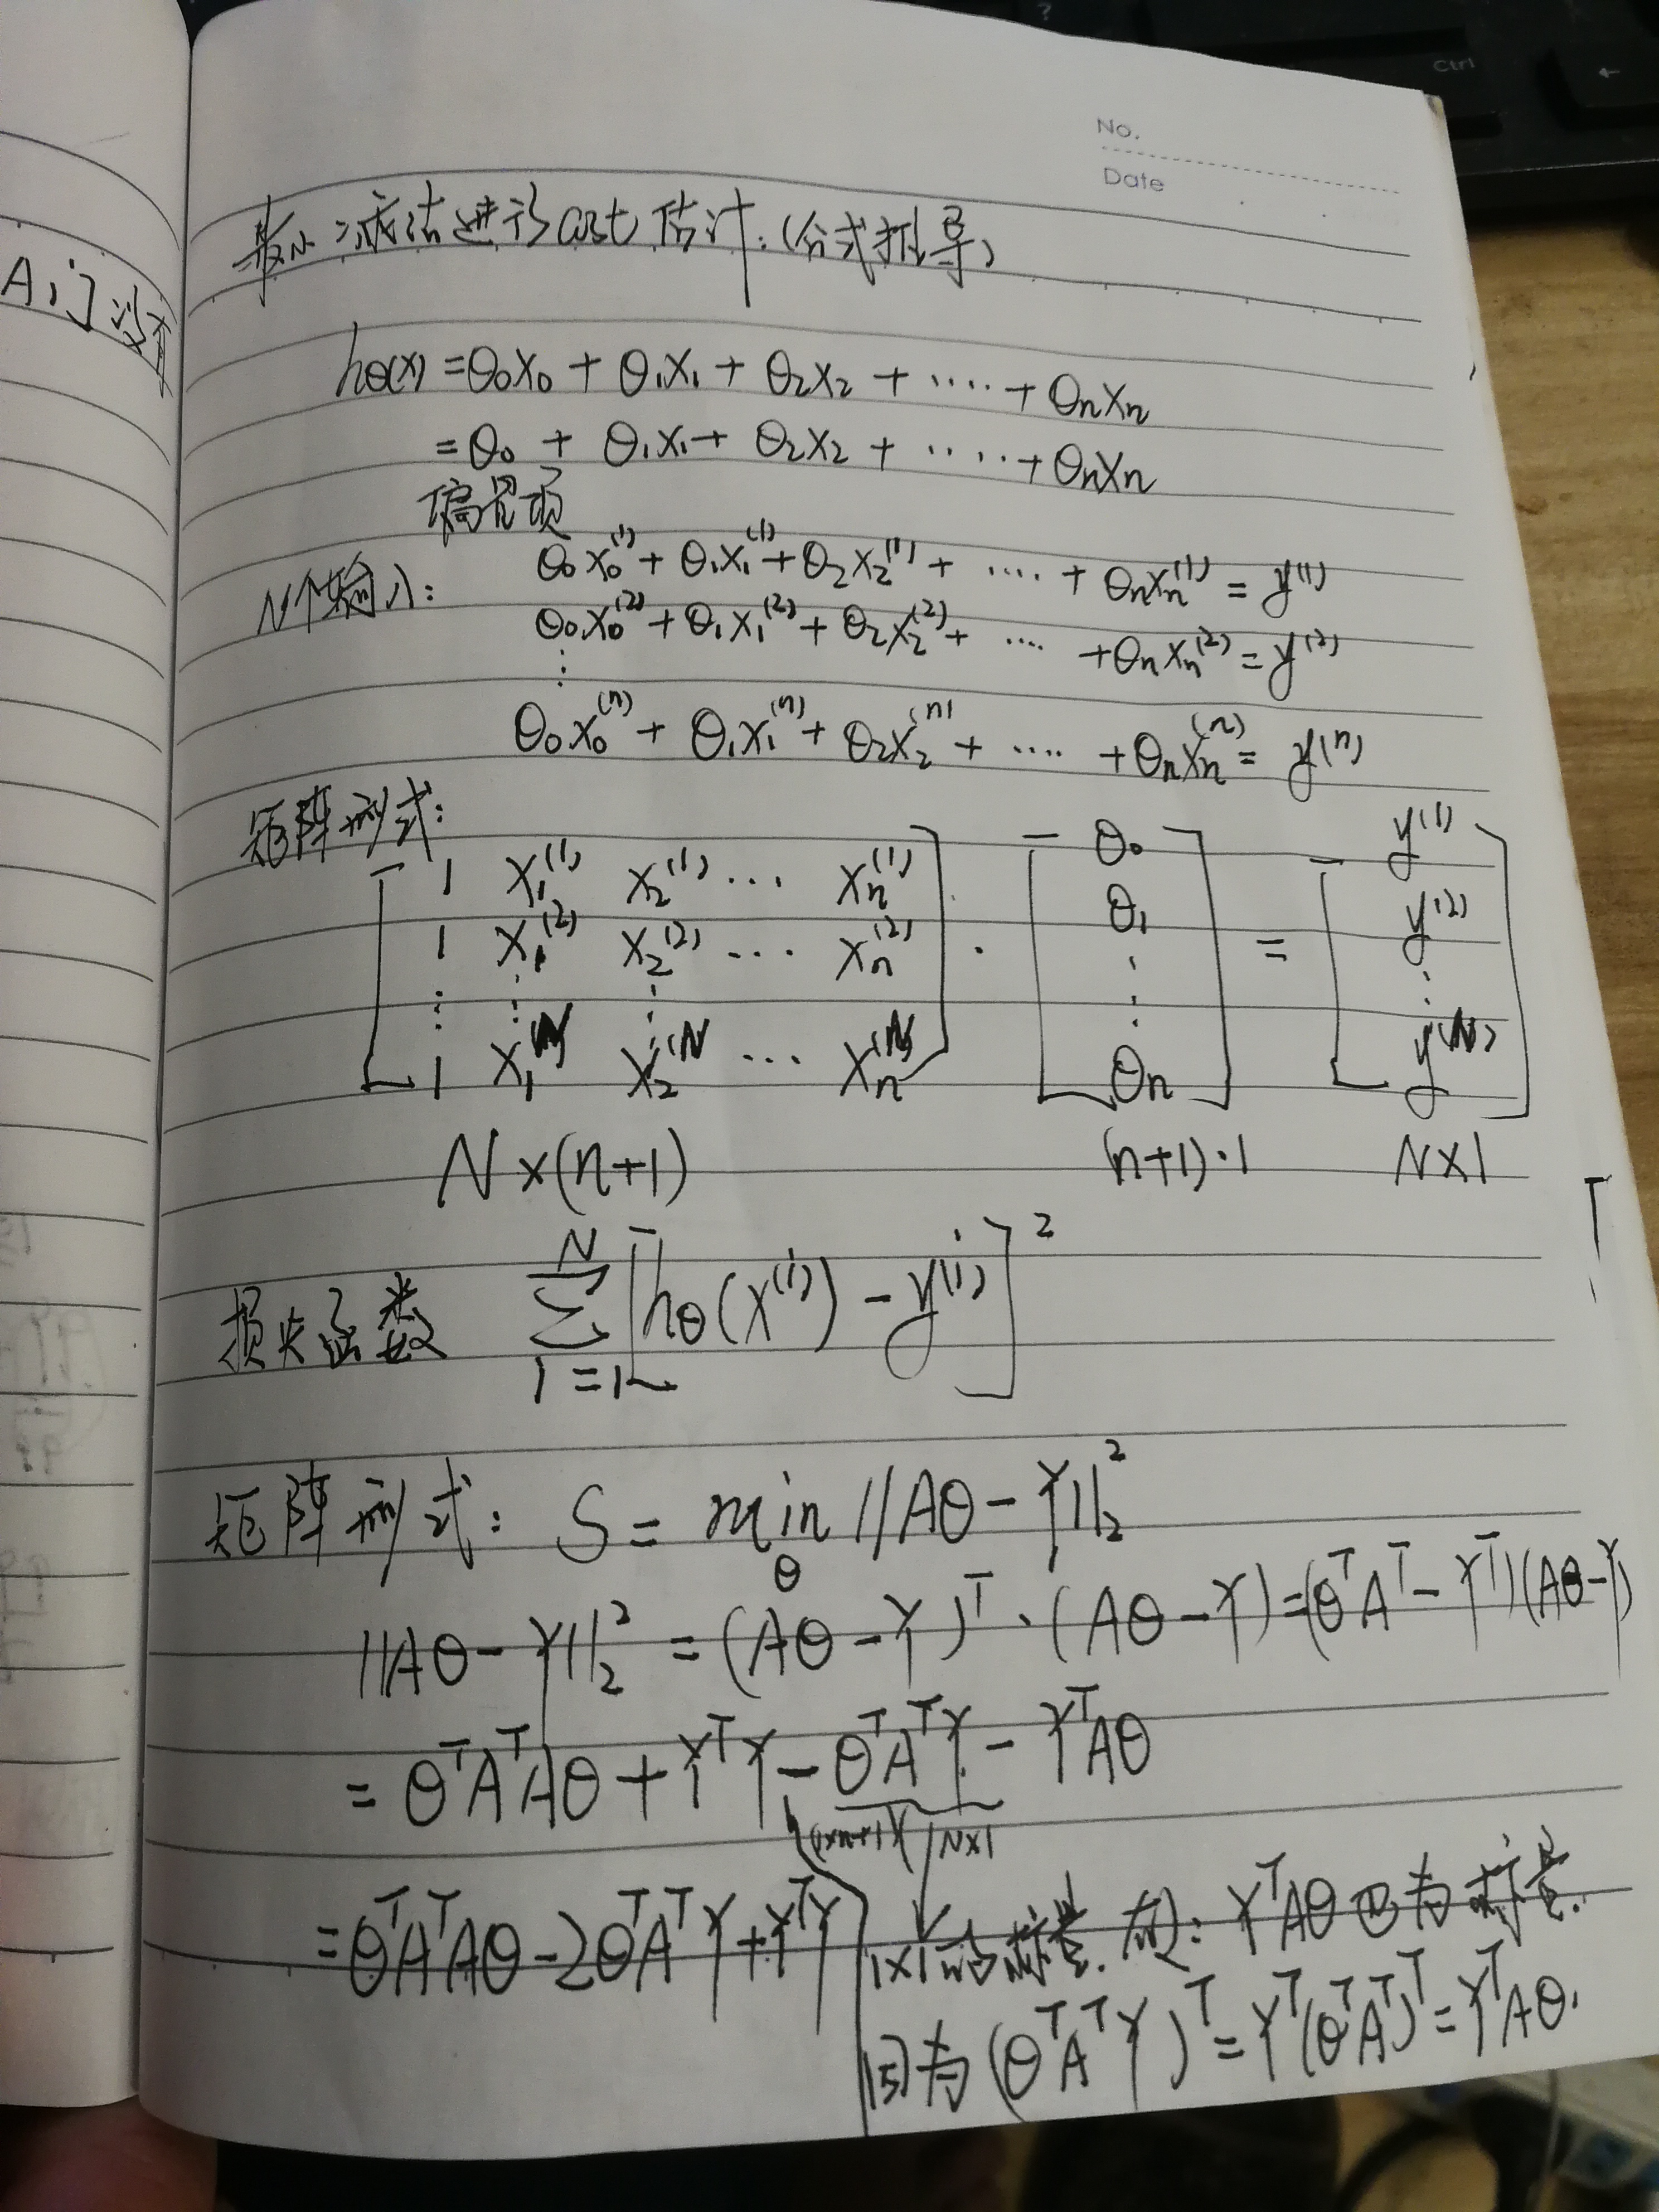 No.
Date
最小二乘法进行cost估计:(公式推导)
hθ(x) = θ₀x₀ + θ₁x₁ + θ₂x₂ + ····· + θₙxₙ
= θ₀ + θ₁x₁ + θ₂x₂ + ····· + θₙxₙ
偏置项
N个输入: θ₀x₀⁽¹⁾ + θ₁x₁⁽¹⁾ + θ₂x₂⁽¹⁾ + ···· + θₙxₙ⁽¹⁾ = y⁽¹⁾
θ₀x₀⁽²⁾ + θ₁x₁⁽²⁾ + θ₂x₂⁽²⁾ + ···· + θₙxₙ⁽²⁾ = y⁽²⁾
⋮
θ₀x₀⁽ⁿ⁾ + θ₁x₁⁽ⁿ⁾ + θ₂x₂⁽ⁿ⁾ + ···· + θₙxₙ⁽ⁿ⁾ = y⁽ⁿ⁾
矩阵形式:
[ 1 x₁⁽¹⁾ x₂⁽¹⁾ ··· xₙ⁽¹⁾ ] · [ θ₀ ] = [ y⁽¹⁾ ]
[ 1 x₁⁽²⁾ x₂⁽²⁾ ··· xₙ⁽²⁾ ] [ θ₁ ] [ y⁽²⁾ ]
⋮ ⋮ ⋮ ⋮ ⋮
[ 1 x₁⁽ᴺ⁾ x₂⁽ᴺ ··· xₙ⁽ᴺ⁾ ] [ θₙ ] [ y⁽ᴺ⁾ ]
N×(n+1) (n+1)·1 N×1
损失函数 ∑ᵢ₌₁ᴺ [hθ(x⁽ⁱ⁾) − y⁽ⁱ⁾]²
矩阵形式: S = min_θ ||Aθ − Y||₂²
||Aθ − Y||₂² = (Aθ − Y)ᵀ · (Aθ − Y) = (θᵀAᵀ − Yᵀ)(Aθ − Y)
= θᵀAᵀAθ + YᵀY − θᵀAᵀY − YᵀAθ
(1×n+1)( N×1
= θᵀAᵀAθ − 2θᵀAᵀY + YᵀY
1×1 标量. 则: YᵀAθ 也为标量.
因为 (θᵀAᵀY)ᵀ = Yᵀ(θᵀAᵀ)ᵀ = YᵀAθ.